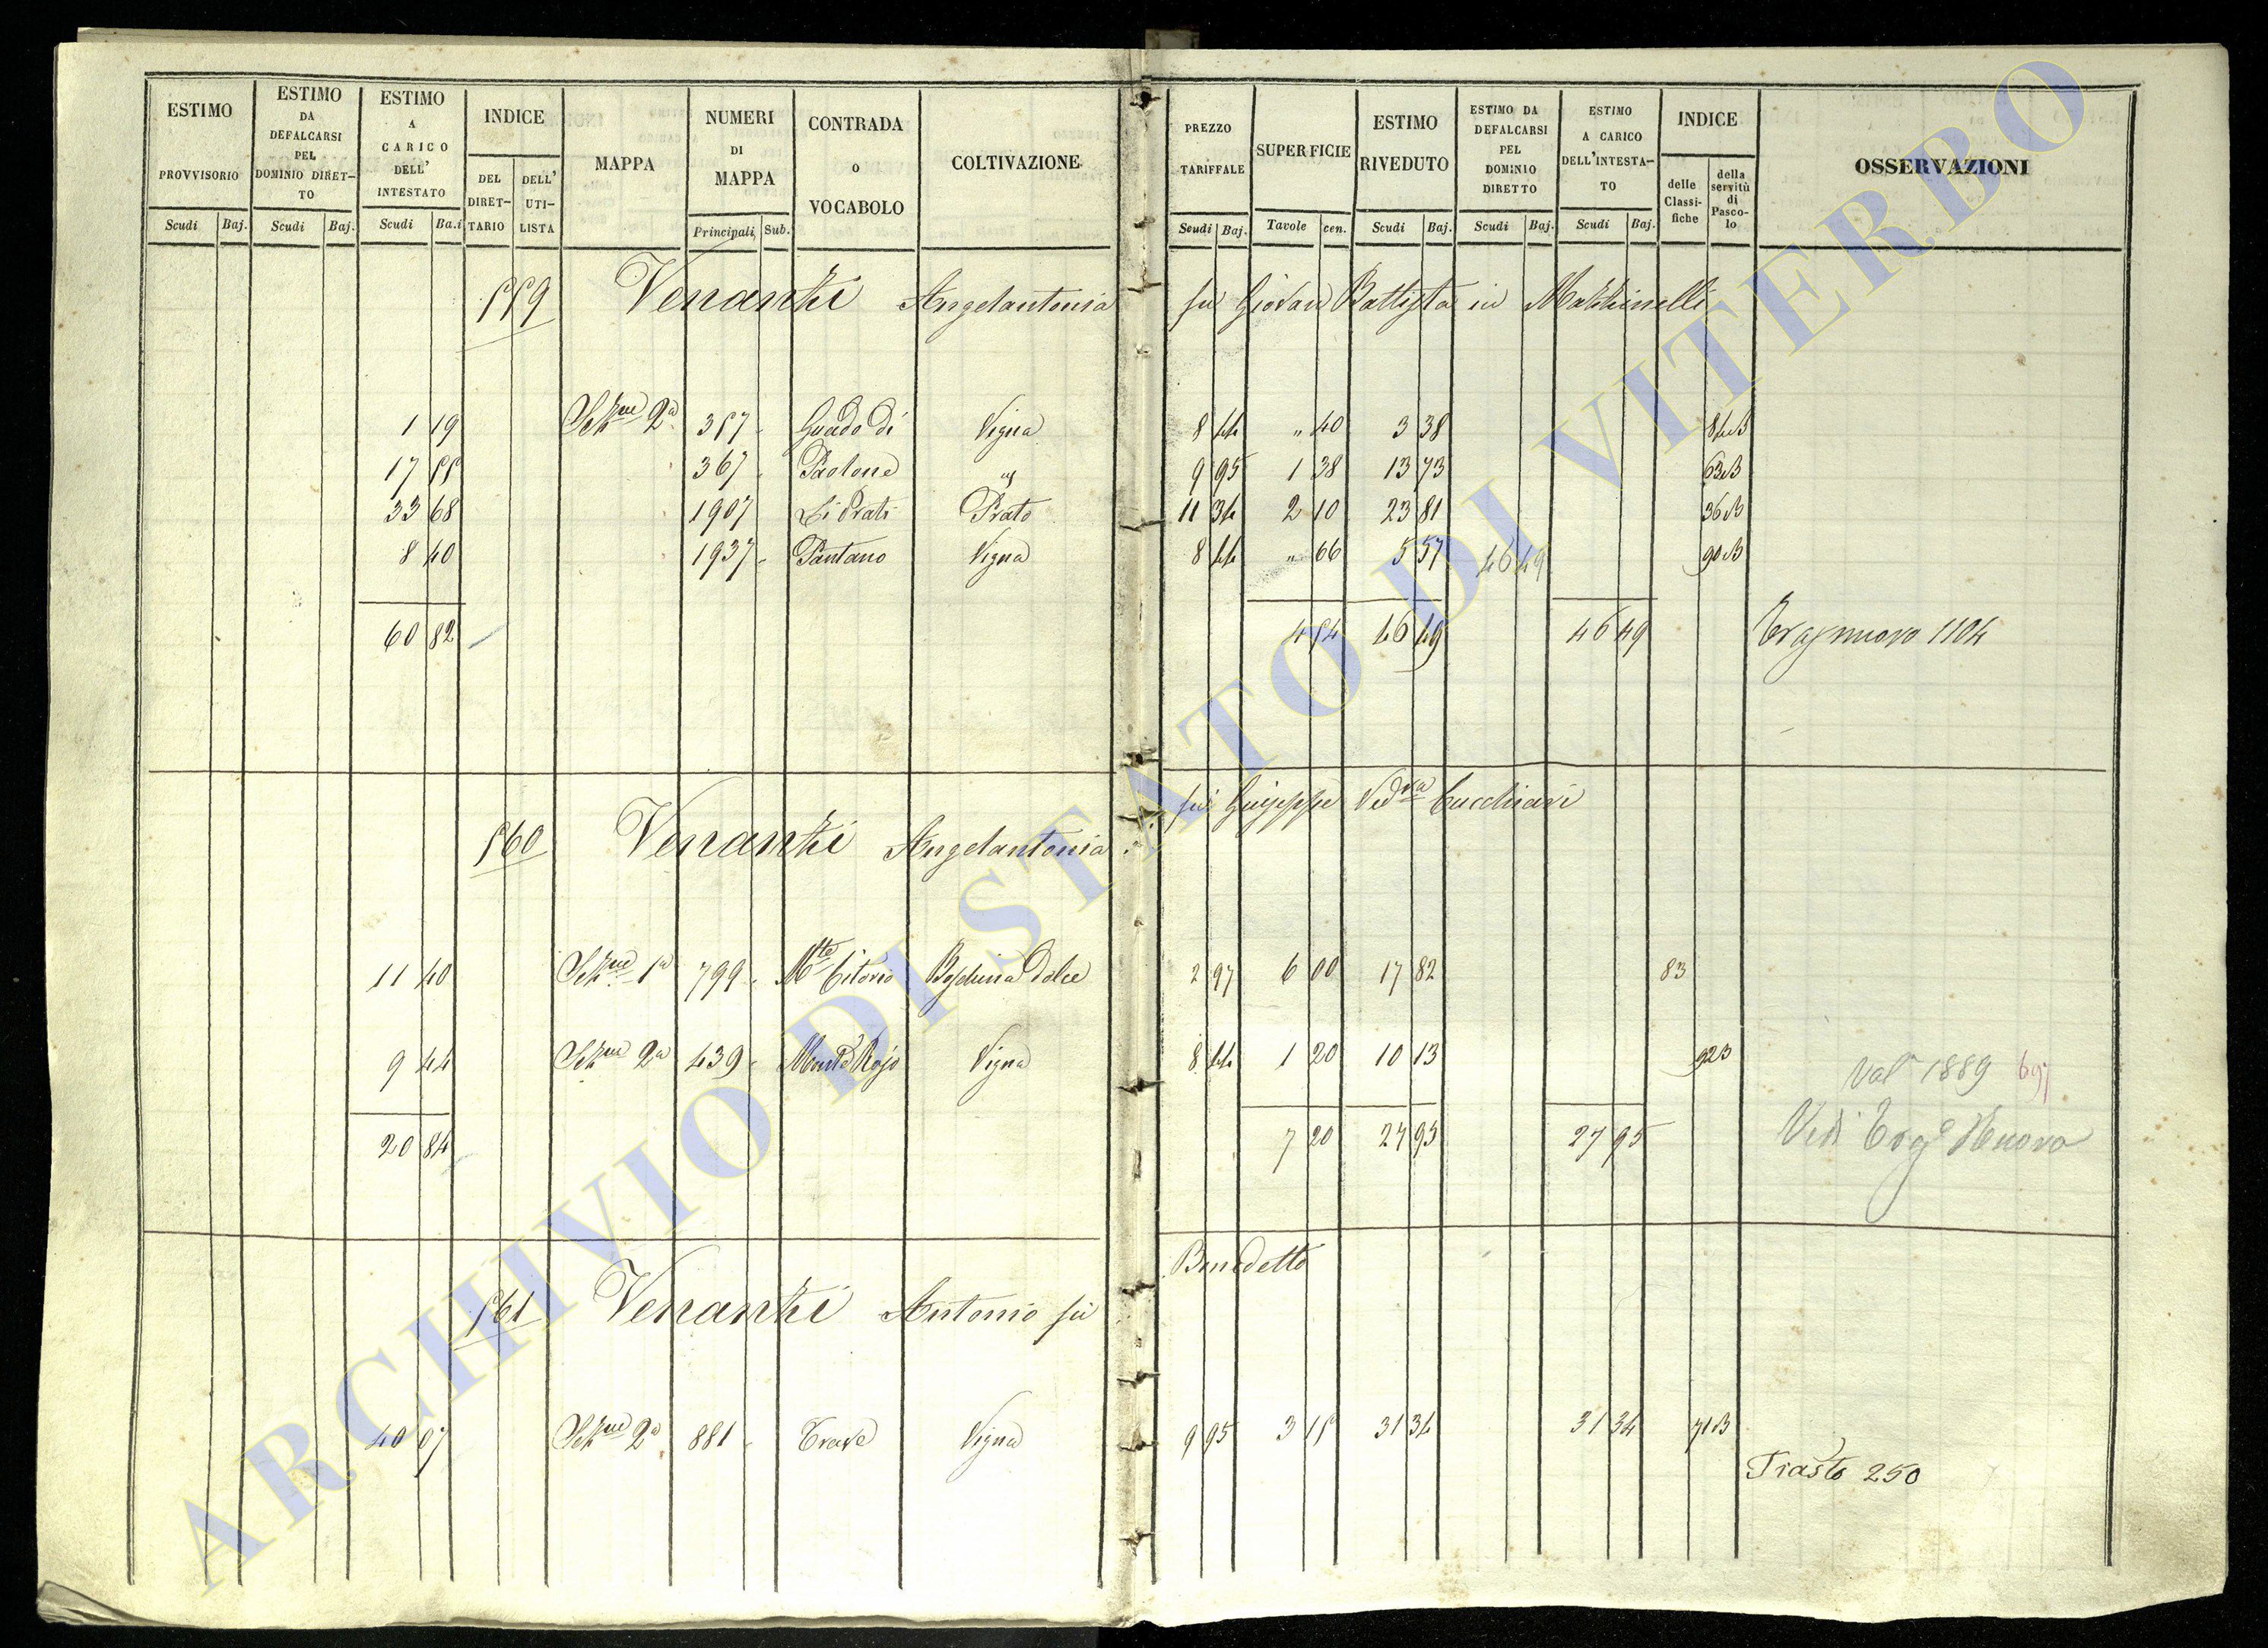 ESTIMO PROVVISORIO
Scudi Baj.
ESTIMO DA DEFALCARSI PEL DOMINIO DIRET-TO
Scudi Baj.
ESTIMO A CARICO DELL' INTESTATO
Scudi Ba.i
INDICE
DEL DIRET-TARIO
DELL' UTI-LISTA
MAPPA
NUMERI DI MAPPA
Principali Sub.
CONTRADA o VOCABOLO
COLTIVAZIONE
PREZZO TARIFFALE
Scudi Baj.
SUPERFICIE
Tavole cen.
ESTIMO RIVEDUTO
Scudi Baj.
ESTIMO DA DEFALCARSI PEL DOMINIO DIRETTO
Scudi Baj.
ESTIMO A CARICO DELL'INTESTA-TO
Scudi Baj.
INDICE
delle Classi-fiche
della servitù di Pasco-lo
OSSERVAZIONI
559 Venanzi Angelantonia fu Giovan Battista in Mazzinelli
1 19 Sezne 2a 357 Guado di Vigna 8 44 " 40 3 38 84B
17 55 367 Paolone " 9 95 1 38 13 73 63B
33 68 1907 Li Prati Prato 11 34 2 10 23 81 36B
8 40 1937 Pantano Vigna 8 44 " 66 5 57 46 49 90B
60 82 4 54 46 49 46 49 nuovo 1104
560 Venanzi Angelantonia fu Giuseppe Vedva Cucchiari
11 40 Sezne 1a 799 Mte Citorio Boschina Dolce 2 97 6 00 17 82 83
9 44 Sezne 2a 439 Monte Rojo Vigna 8 44 1 20 10 13 92B
Val 1889 697
20 84 7 20 27 95 27 95 Vedi Nuovo
561 Venanzi Antonio fu Benedetto
40 07 Sezne 2a 881 Trave Vigna 9 95 3 15 31 34 31 34 71B
Trasto 250
ARCHIVIO DI STATO DI VITERBO